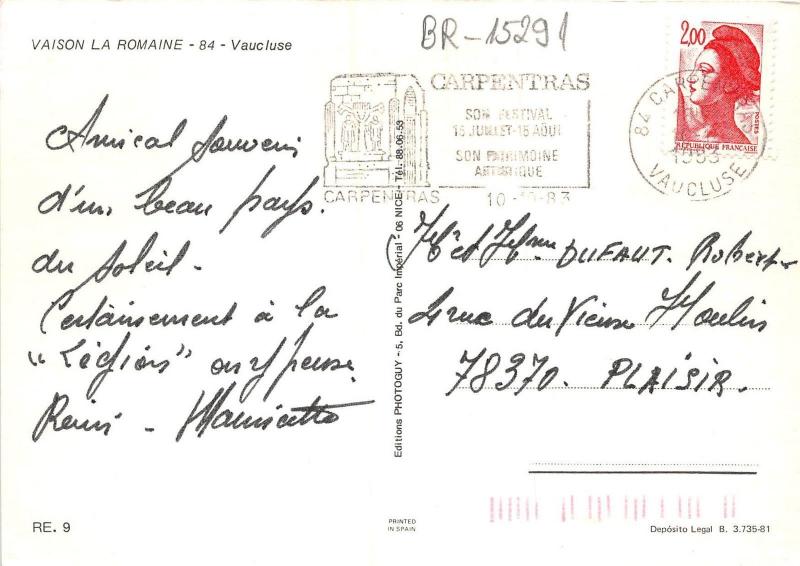 BR-15291
VAISON LA ROMAINE - 84 - Vaucluse
2,00
POSTES
RÉPUBLIQUE FRANÇAISE
CARPENTRAS
SON FESTIVAL
15 JUILLET-15 AOUT
SON PATRIMOINE
ARTISTIQUE
CARPENTRAS
10 - -83
84 CARPENTRAS
1983
VAUCLUSE
Amical souvenir
d'un beau pays
du soleil -
Certainement à la
"Légion" on y pense
Rémi - Mauricette
Editions PHOTOGUY - 5, Bd. du Parc Impérial - 06 NICE - Tél. 88.06.53
Mr et Mme DUFAUT Robert
rue du Vieux Moulin
78370. PLAISIR.
RE. 9
PRINTED
IN SPAIN
Depósito Legal B. 3.735-81